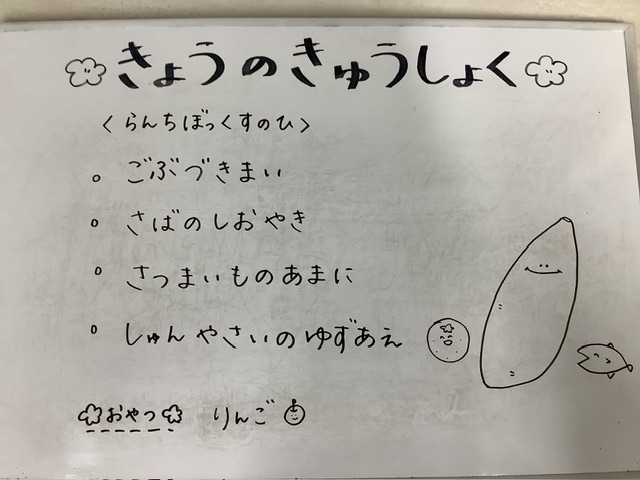 きょうのきゅうしょく
〈らんちぼっくすのひ〉
。ごぶづきまい
。さばのしおやき
。さつまいものあまに
。しゅんやさいのゆずあえ
おやつ りんご